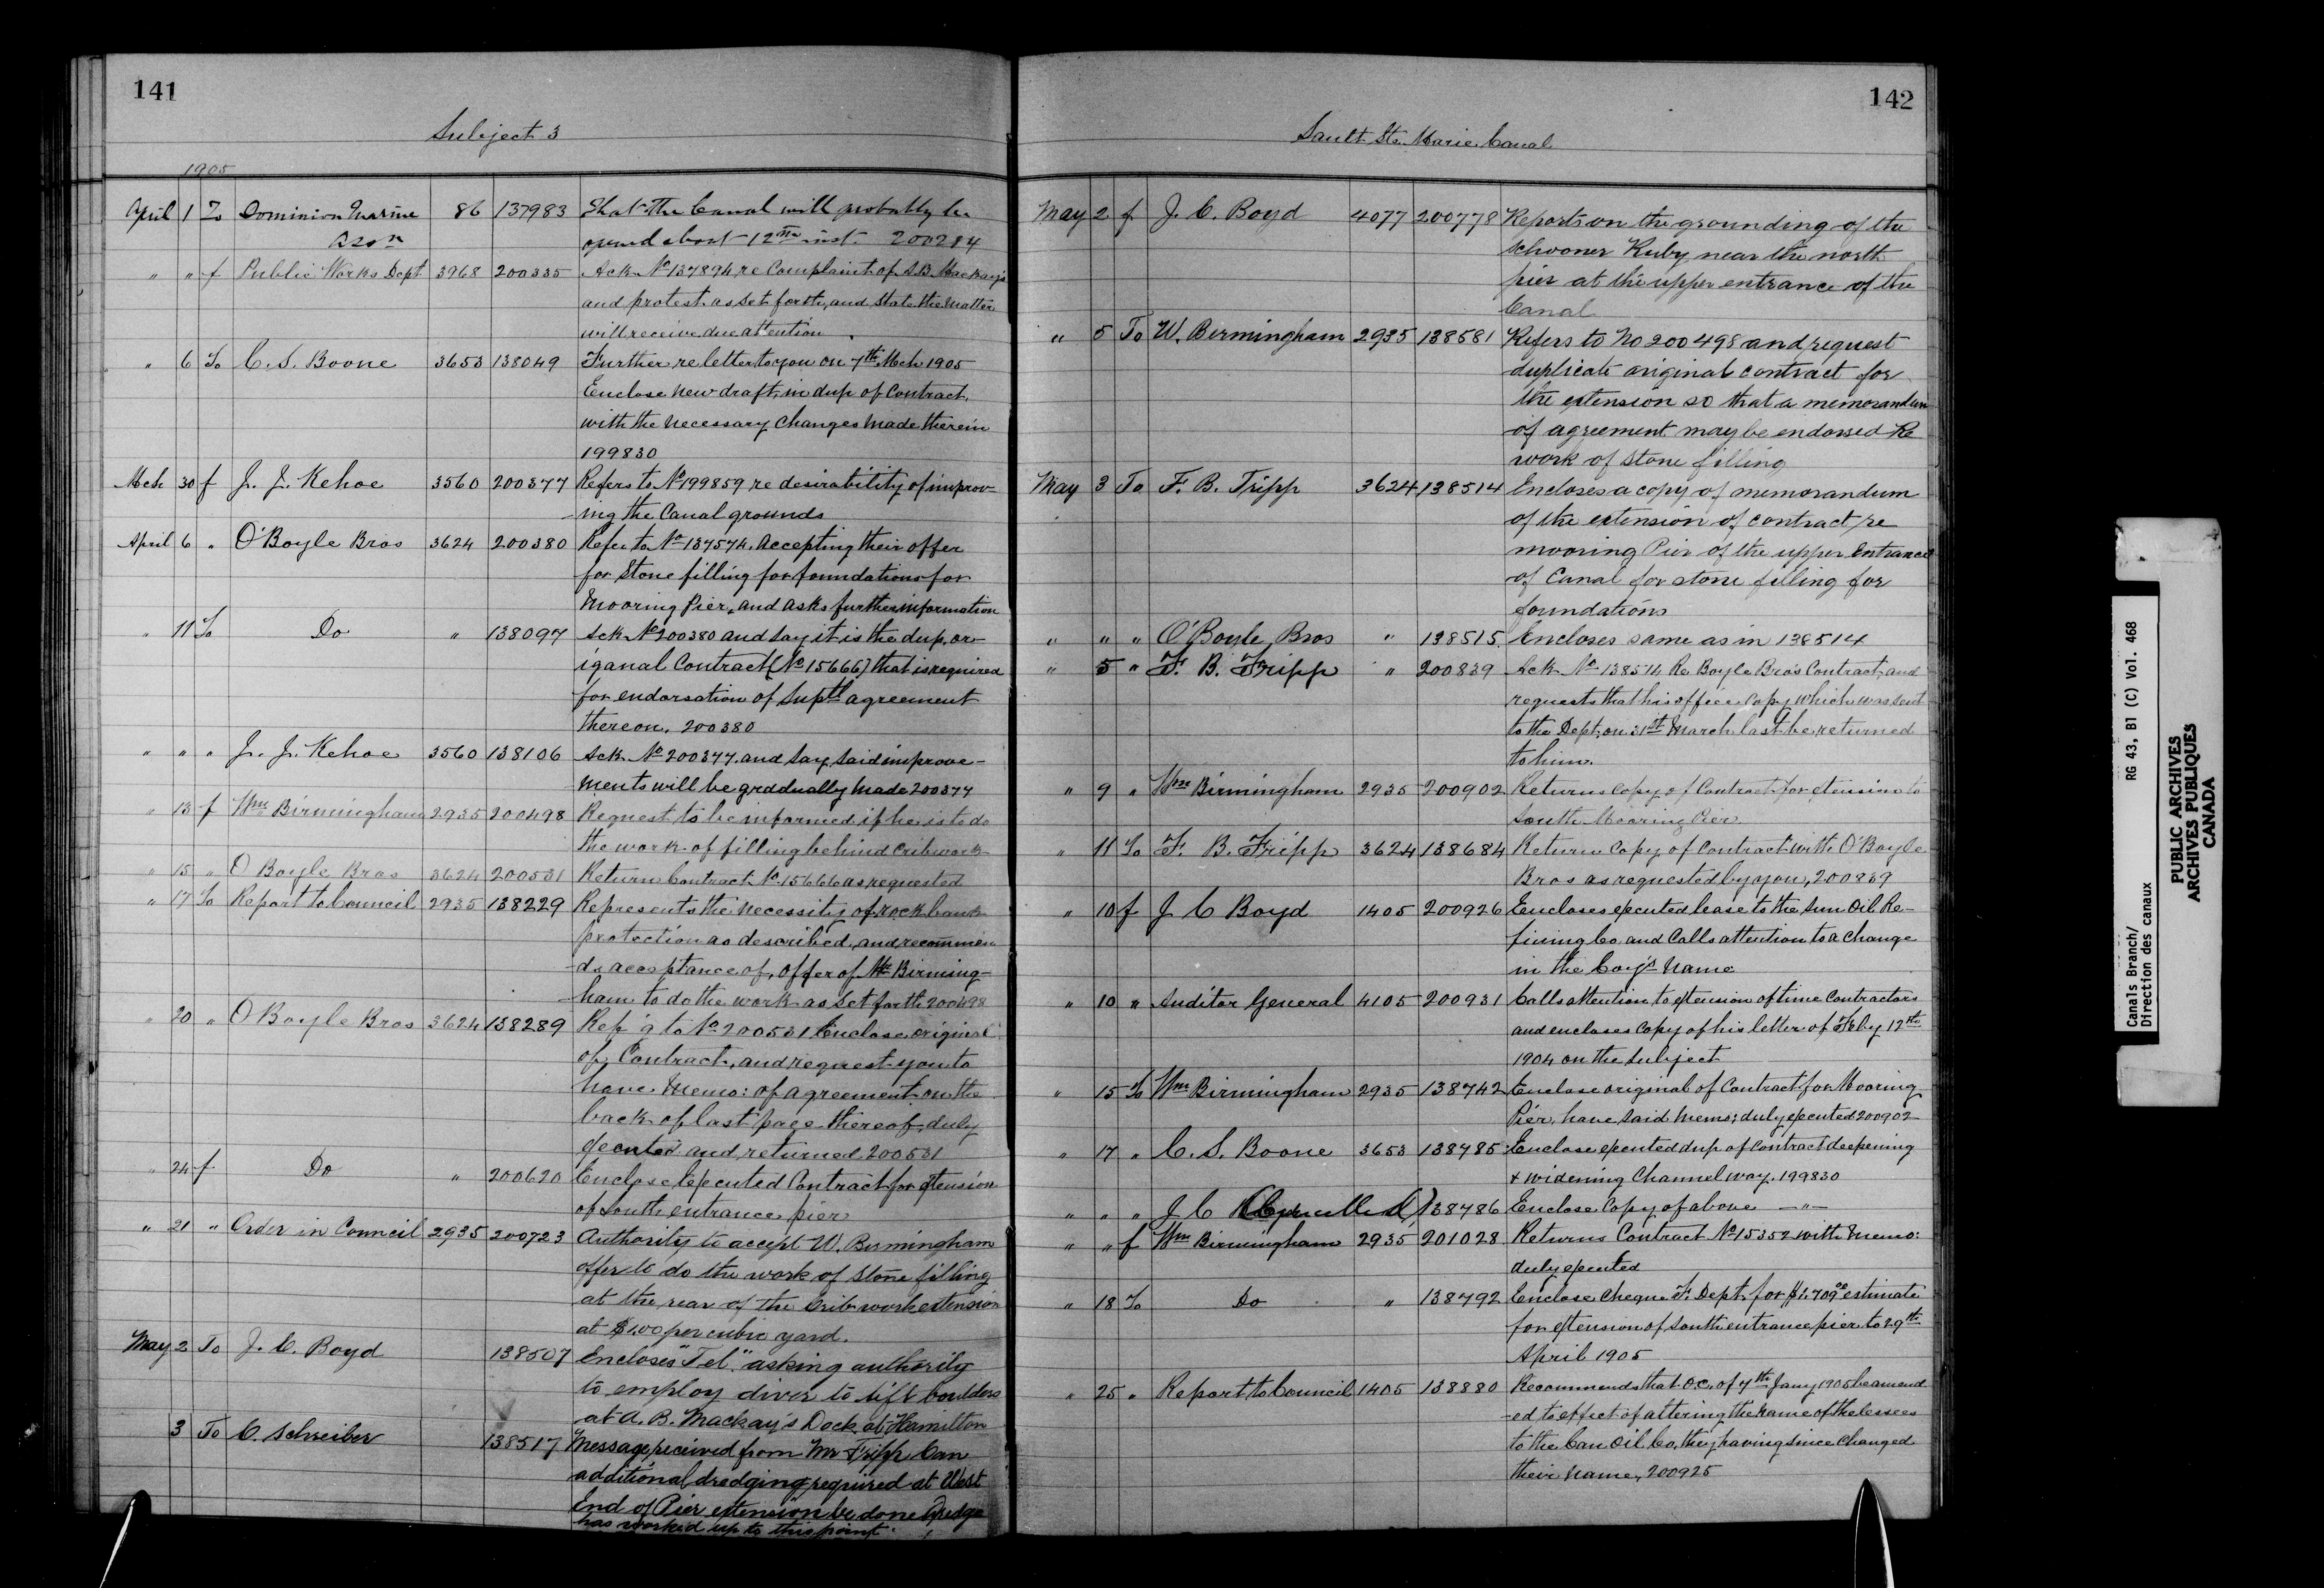 141
Subject 3
1905
April 1 To Dominion Marine 86 137983 That the Canal will probably be
Assn opened about 12th inst. 200284
" " f Public Works Dept 3968 200335 Ack No 137894 re Complaint of A.B. Mackay's
and protest as set forth, and state the matter
will receive due attention
" 6 To C. S. Boone 3653 138049 Further re letter to you on 7th Mch 1905
Enclose new draft, in dup of Contract,
with the necessary changes made therein
199830
Mch 30 f J. J. Kehoe 3560 200377 Refers to No 199859 re desirability of improv-
ing the Canal grounds
April 6 " O'Boyle Bros 3624 200380 Refer to No 137574. Accepting their offer
for Stone filling for foundations for
Mooring Pier, and asks further information
" 11 To Do " 138097 Ack No 200380 and say it is the dup. or-
iganal Contract (No 15666) that is required
for endorsation of Suptl agreement
thereon. 200380
" " " J. J. Kehoe 3560 138106 Ack No 200377. and say, said improve-
ments will be gradually made 200377
" 13 f Wm Birmingham 2935 200498 Request to be informed if he is to do
the work of filling behind cribwork
" 15 " O Boyle Bros 3624 200531 Return Contract No 15666 as requested
" 17 To Report to Council 2935 138229 Represents the necessity of rock bank
protection as described, and recommen
-ds acceptance of, offer of Mr Birming-
ham to do the work as set forth 200498
" 20 " O Boyle Bros 3624 138289 Rep'g to No 200531 Enclose original
of Contract, and request you to
have Memo: of agreement on the
back of last page thereof, duly
executed and returned 200531
" 24 f Do " 200620 Enclose Executed Contract for extension
of South entrance pier
" 21 " Order in Council 2935 200723 Authority to accept W. Birmingham
offer to do the work of stone filling
at the rear of the Crib work extension
at $1.00 per cubic yard.
May 2 To J. C. Boyd 138507 Encloses "Tel." asking authority
to employ diver to lift boulders
at A. B. Mackay's Dock at Hamilton
3 To C. Schreiber 138517 Message received from Mr Fripp Can
additional dredging required at West
End of Pier extension be done Dredge
has worked up to this point.
142
Sault Ste. Marie Canal
May 2 f J. C. Boyd 4077 200778 Reports on the grounding of the
schooner Ruby near the north
pier at the upper entrance of the
Canal
" 5 To W. Birmingham 2935 138581 Refers to No 200498 and request
duplicate original contract for
the extension so that a memorandum
of agreement may be endorsed Re
work of stone filling
May 3 To F. B. Tripp 3624 138514 Encloses a copy of memorandum
of the extension of contract re
mooring Pier of the upper Entrance
of Canal for stone filling for
foundations
" " " O'Boyle Bros " 138515. Encloses same as in 138514
" 5 " F. B. Fripp " 200839 Ack No 138514 Re Boyle Bros Contract, and
requests that his office Copy which was sent
to the Dept, on 31st March last be returned
to him.
" 9 " Wm Birmingham 2935 200902 Returns Copy of Contract for extension to
South Mooring Pier
" 11 To F. B. Fripp 3624 138684 Return Copy of Contract with O'Boyle
Bros as requested by you, 200839
" 10 f J C Boyd 1405 200926 Encloses executed lease to the Sun Oil Re-
fining Co and Calls attention to a change
in the Coy's Name
" 10 " Auditor General 4105 200931 Calls attention to extension of time Contractors
and encloses Copy of his letter of Feby 12th
1904 on the Subject
" 15 To Wm Birmingham 2935 138742 Enclose original of Contract for Mooring
Pier, have said Memo: duly executed 200902
" 17 " C. S. Boone 3653 138785 Enclose executed dup of Contract deepening
& widening Channel way. 199830
" " " J C (Cancelled) 138786 Enclose Copy of above — " —
" " f Wm Birmingham 2935 201028 Returns Contract No 15352 with Memo:
duly executed
" 18 To Do " 138792 Enclose Cheque F. Dept. for $1,709.00 estimate
for extension of South entrance pier to 29th
April 1905
" 25 " Report to Council 1405 138880 Recommends that O.C. of 7th Jany 1905 be amend
-ed to effect of altering the name of the lessees
to the Can Oil Co, they having since changed
their name, 200925
Canals Branch/ RG 43, B1 (C) Vol. 468
Direction des canaux
PUBLIC ARCHIVES
ARCHIVES PUBLIQUES
CANADA